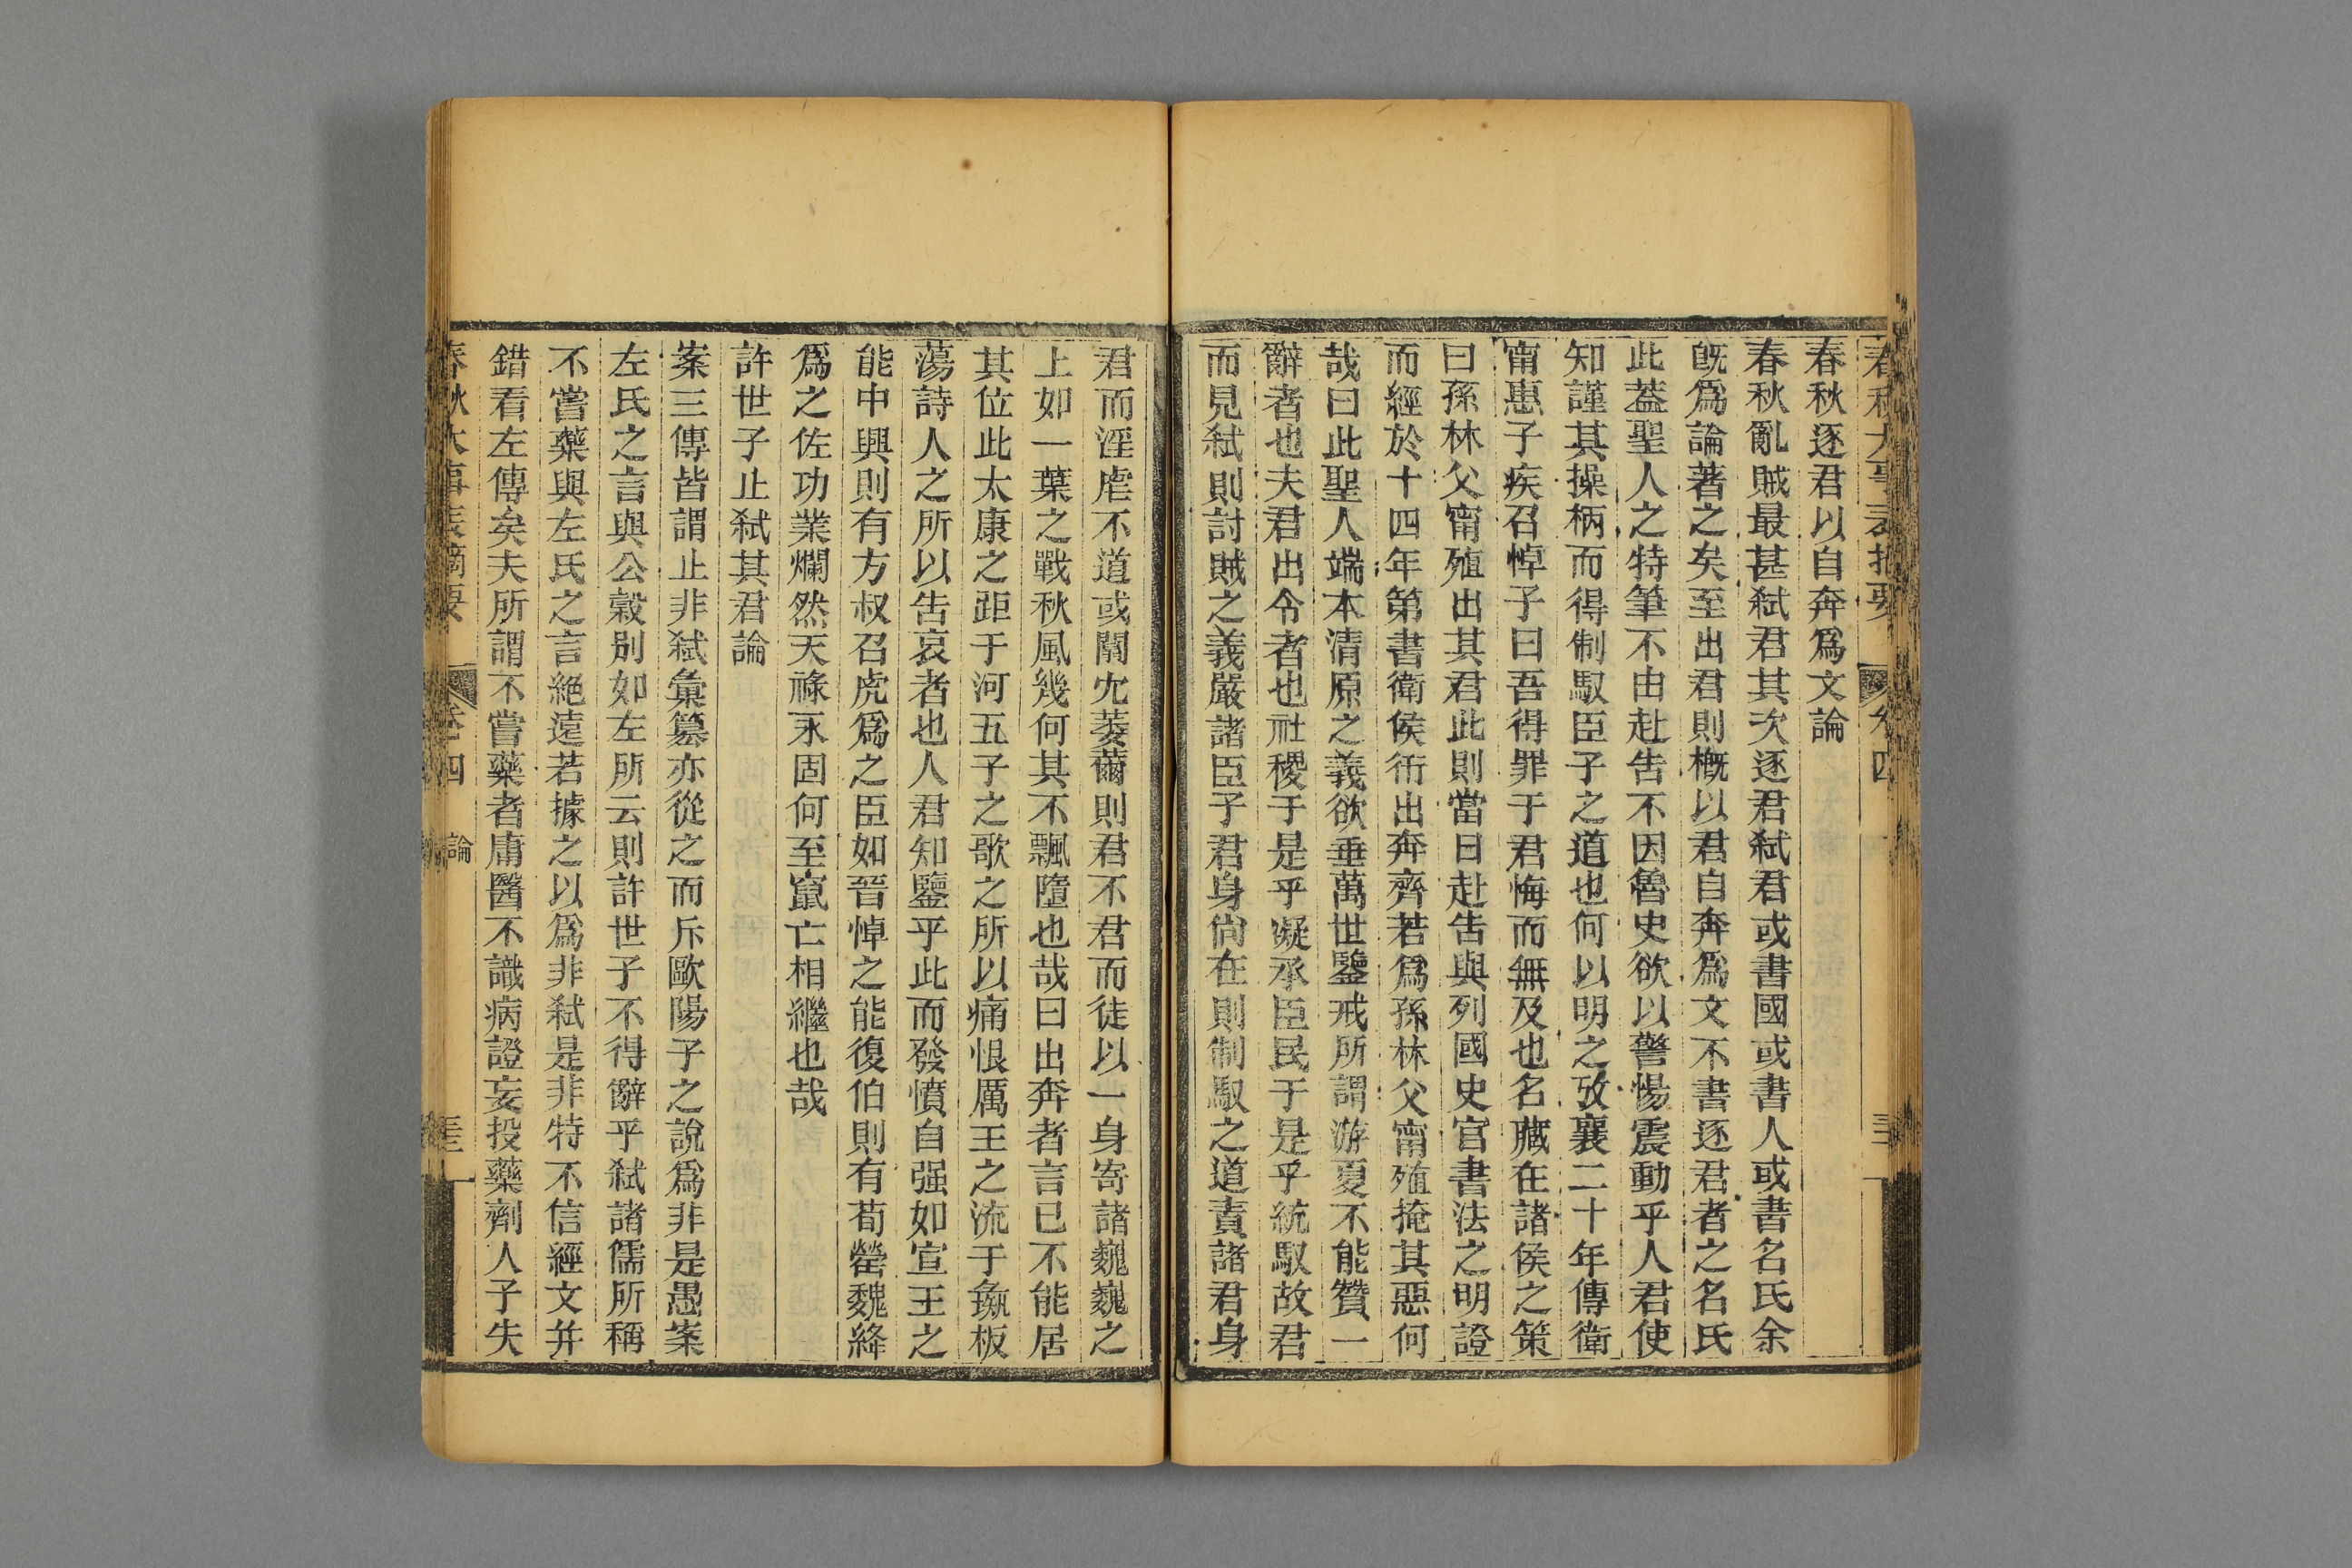 春秋大事表摘要
卷四
春秋逐君以自奔爲文論
春秋亂賊最甚弑君其次逐君弑君或書國或書人或書名氏余
旣爲論著之矣至出君則槪以君自奔爲文不書逐君者之名氏
此蓋聖人之特筆不由赴告不因魯史欲以警惕震動乎人君使
知謹其操柄而得制馭臣子之道也何以明之攷襄二十年傳衛
甯惠子疾召悼子曰吾得罪于君悔而無及也名臧在諸侯之策
曰孫林父甯殖出其君此則當日赴告與列國史官書法之明證
而經於十四年第書衛侯衎出奔齊若爲孫林父甯殖掩其惡何
哉曰此聖人端本清原之義欲垂萬世鑒戒所謂游夏不能贊一
辭者也夫君出令者也社稷于是乎凝承臣民于是乎統馭故君
而見弑則討賊之義嚴諸臣子君身尙在則制馭之道責諸君身
君而淫虐不道或闒冗萎薾則君不君而徒以一身寄諸巍巍之
上如一葉之戰秋風幾何其不飄墮也哉曰出奔者言已不能居
其位此太康之距于河五子之歌之所以痛恨厲王之流于彘板
蕩詩人之所以告哀者也人君知鑒乎此而發憤自强如宣王之
能中興則有方叔召虎爲之臣如晉悼之能復伯則有荀罃魏絳
爲之佐功業爛然天祿永固何至竄亡相繼也哉
許世子止弑其君論
案三傳皆謂止非弑彙纂亦從之而斥歐陽子之說爲非是愚案
左氏之言與公穀別如左所云則許世子不得辭乎弑諸儒所稱
不嘗藥與左氏之言絕遠若據之以爲非弑是非特不信經文并
錯看左傳矣夫所謂不嘗藥者庸醫不識病證妄投藥劑人子失
春秋大事表摘要
卷四
論